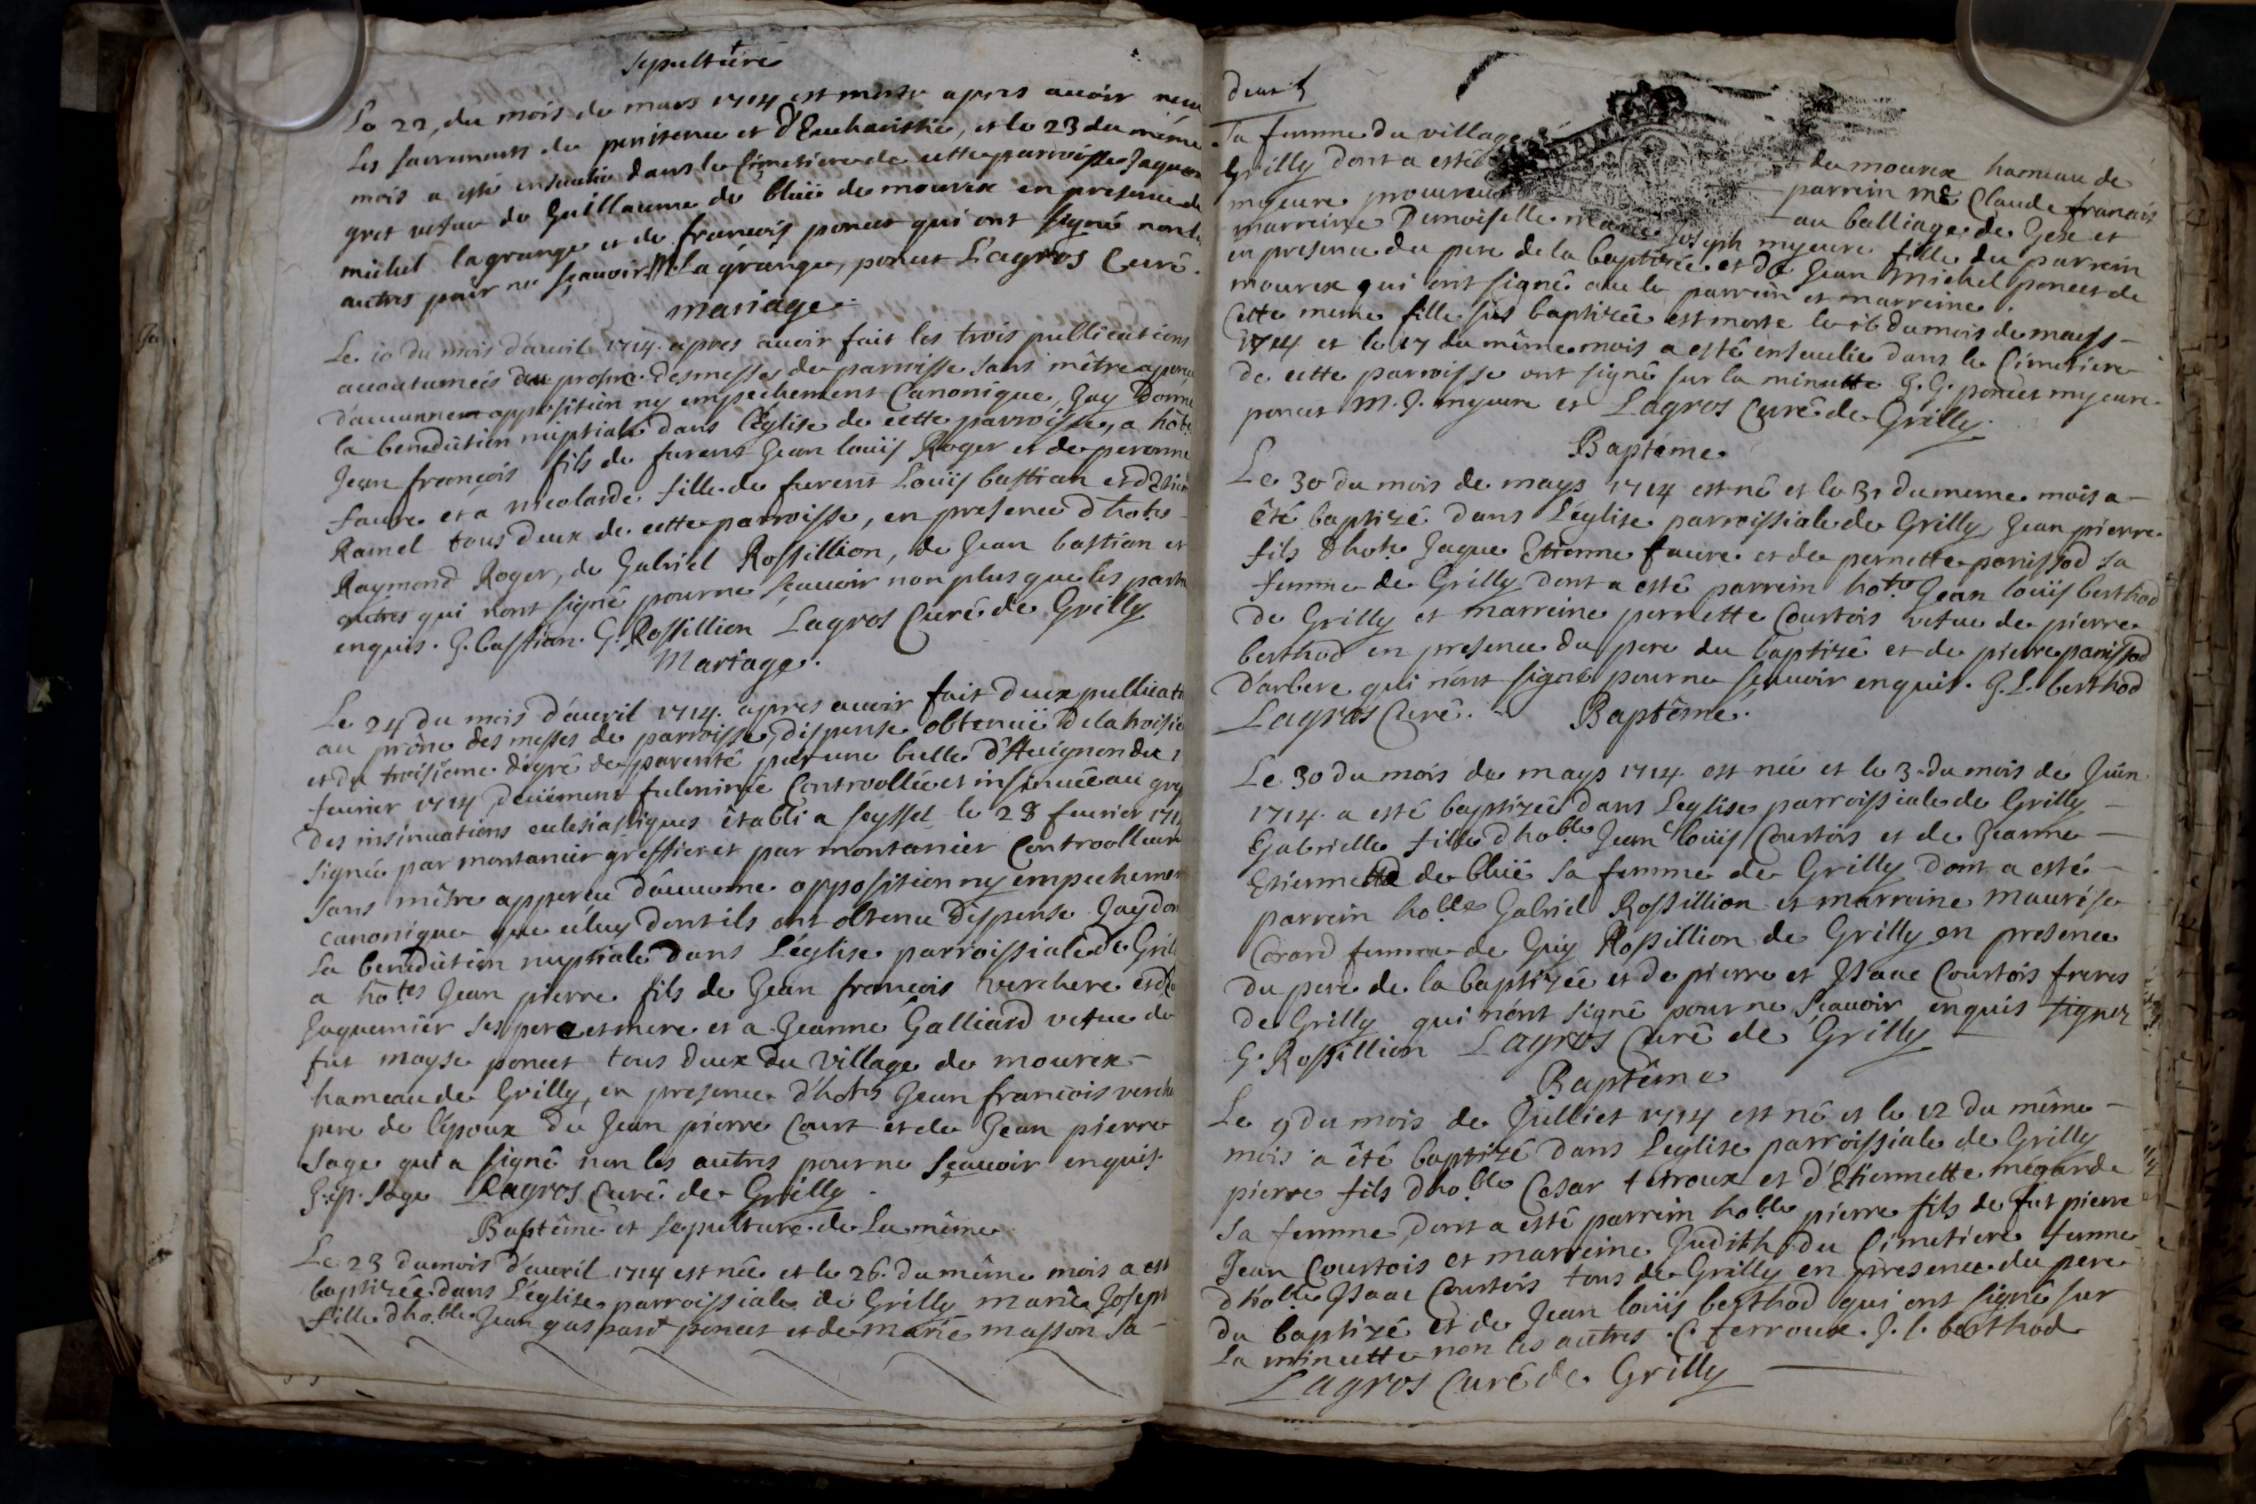 Sepulture
Le 22, du mois de mars 1714 est morte apres avoir receu
les sacrements de penitence et d'Eucharistie, et le 23 du même
mois a esté ensevelie dans le Cimetiere de cette parroisse
vefue de Guillaume de bluë de mourex en presence de
michel lagrange et de francois poncet qui ont signé non les
autres pour ne sçavoir M. Lagrange, poncet Lagros Curé.
mariage.
Le 10 du mois d'avril 1714. apres avoir fait les trois publications
accoutumées au prosne des messes de parroisse sans m'être aperceu
d'aucune opposition ny empechement Canonique, J'ay Donné
la benediction nuptiale dans l'Eglise de cette parroisse, a ho.te
Jean françois fils de furent Jean louis Roger et de peronne
faure et a nicolarde fille de furent Louis bastian et d'Etien
Ramel tous deux de cette parroisse, en presence d'ho.te
Raymond Roger, de Gabriel Rossillion, de Jean bastian et
autres qui n'ont signé pour ne sçavoir non plus que les parties
enquis. J. bastian. G. Rossillion Lagros Curé de Grilly
Mariage.
Le 24 du mois d'avril 1714. apres avoir fait deux publicati
au prône des messes de parroisse, dispense obtenuë de la troisie
et du troisiême degré de parenté par une bulle d'Avignon du
fevrier 1714 deuëment fulminée Controollée et insinuée au gre
des insinuations eclesiastiques établi a seyssel le 28 fevrier 171
signée par montanier greffier et par montanier Controolleur
sans m'être apperceu d'aucune opposition ny empechement
canonique que celuy dont ils ont obtenu Dispense J'ay don
la benediction nuptiale dans l'église parroissiale de Gril
a ho.tes Jean pierre fils de Jean francois verchere et de
Jaquemier ses pere et mere et a Jeanne Galliard vefue de
fut moyse poncet tous deux du village de mourex
hameau de Grilly, en presence d'ho.tes Jean francois verch
pere de l'époux de Jean pierre Court et de Jean pierre
sage qui a signé non les autres pour ne sçavoir enquis.
J. p. sage Lagros Curé de Grilly.
Baptême et sepulture de la même
Le 23 du mois d'avril 1714 est née et le 26. du même mois a est
baptizée dans l'église parroissiale de Grilly marie Joseph
fille d'ho.ble Jean gaspard poncet et de marie masson sa
deux
sa femme du village de mourex hameau de
Grilly dont a esté parrein me Claude francois
myeure procureur au balliage de Gex et
marreine Demoiselle marie Joseph myeure fille du parrein
en presence du pere de la baptizée et de Jean Michel poncet de
mourex qui ont signé avec le parrein et marreine.
Cette meme fille sus baptizée est morte le 16 du mois de mays
1714 et le 17 du même mois a esté ensevelie dans le Cimetiere
de cette parroisse ont signé sur la minutte J. G. poncet myeure
poncet M. J. myeure et Lagros Curé de Grilly.
Baptême
Le 30 du mois de mays 1714 est né et le 31 du meme mois a
êté baptizé dans l'église parroissiale de Grilly, Jean pierre
fils d'ho.te Jaque Etienne faure et de pernette panissod sa
femme de Grilly dont a esté parrein ho.te Jean louis berthod
de Grilly et marreine pernette Courtois vefue de pierre
berthod en presence du pere du baptizé et de pierre panissod
d'arbere qui n'ont signé pour ne sçavoir enquis. J. L. berthod
Lagros Curé. Baptême.
Le 30 du mois de mays 1714. est née et le 3. du mois de Juin
1714. a esté baptizée dans l'eglise parroissiale de Grilly
Gabrielle fille d'ho.ble Jean louis Courtois et de Jeanne
Etiennette de bluë sa femme de Grilly dont a esté
parrein ho.ble Gabriel Rossillion et marreine maurise
Corard femme de Guy Rossillion de Grilly en presence
du pere de la baptizée et de pierre et Isaac Courtois freres
de Grilly qui n'ont signé pour ne sçavoir enquis signer
G. Rossillion Lagros Curé de Grilly
Baptême
Le 9 du mois de Julliet 1714 est né et le 12 du même
mois a êté baptizé dans l'eglise parroissiale de Grilly
pierre fils d'ho.ble Cesar terroux et d'Etiennette mégarde
sa femme dont a esté parrein ho.ble pierre fils de fut pierre
Jean Courtois et marreine Judith du Cimetiere femme
d'ho.ble Isaac Courtois tous de Grilly en presence du pere
du baptizé et de Jean louis berthod qui ont signé sur
la minutte non les autres. C. terroux. J. l. berthod
Lagros Curé de Grilly